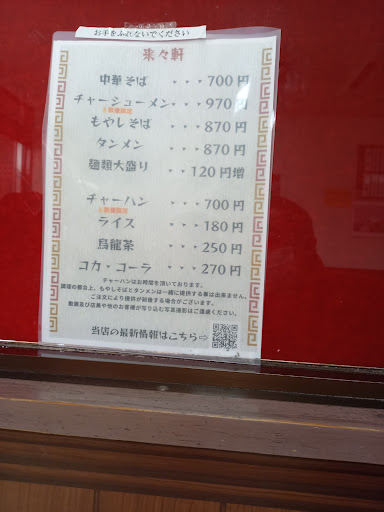 お手をふれないでください
来々軒
中華そば ・・・700円
チャーシューメン・・・970円
数量限定
もやしそば ・・・870円
タンメン ・・・870円
麺類大盛り ・・120円増
チャーハン ・・・700円
数量限定
ライス ・・・180円
烏龍茶 ・・・250円
コカ・コーラ ・・・270円
チャーハンはお時間を頂いております。
調理の都合上、もやしそばとタンメンは一緒に提供する事は出来ません。
ご注文により提供が前後する場合がございます。
動画及び店員や他のお客様が写り込む写真撮影はご遠慮ください。
当店の最新情報はこちら⇨